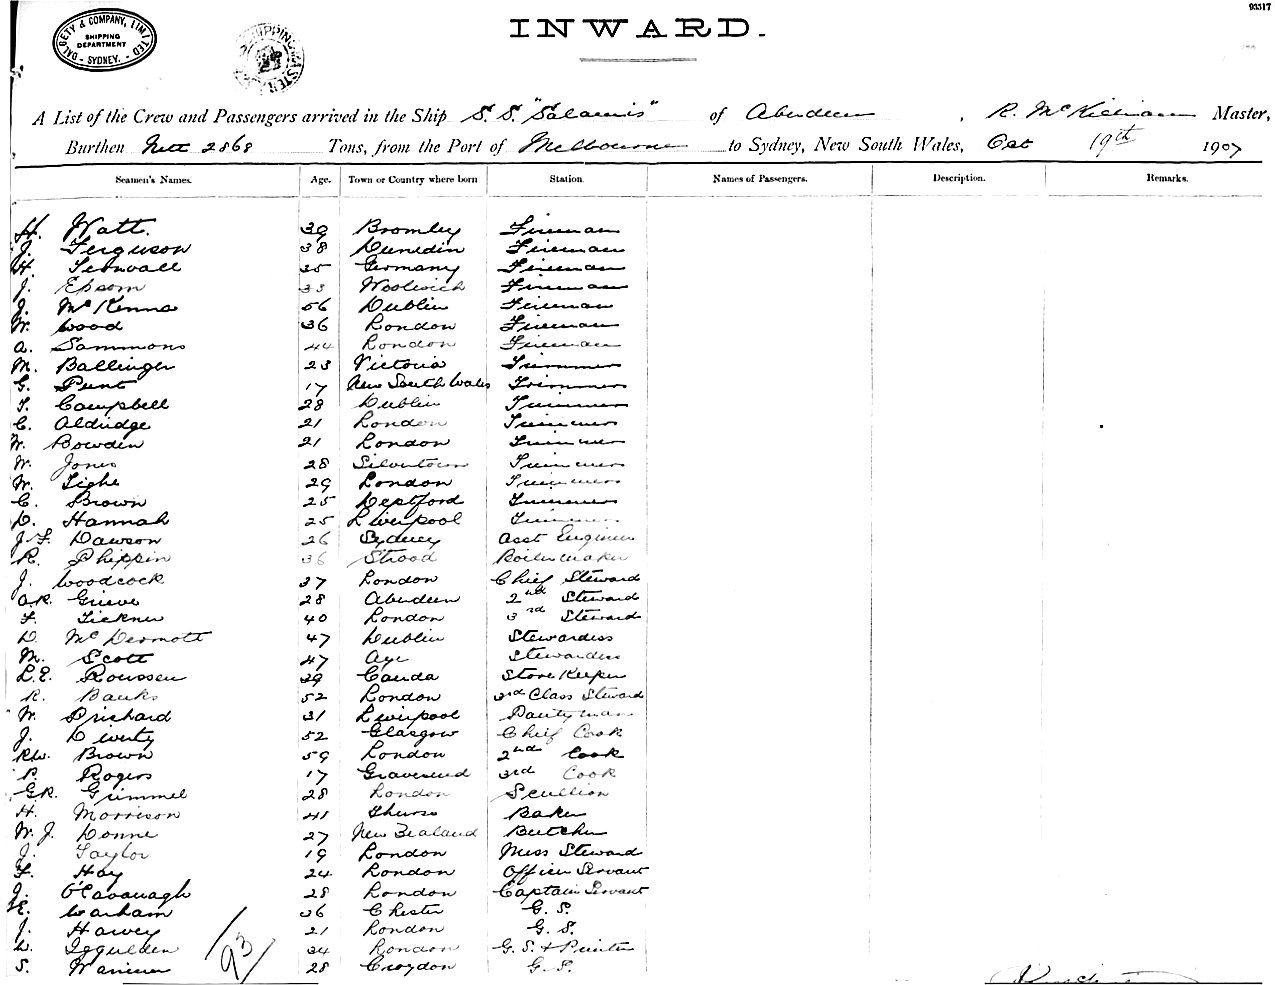 93517
DALGETY & COMPANY, LIMITED
SHIPPING DEPARTMENT
SYDNEY.
SHIPPING MASTER
INWARD.
A List of the Crew and Passengers arrived in the Ship S. S. "Salamis" of Aberdeen, R. McKilliam Master,
Burthen Nett 2868 Tons, from the Port of Melbourne to Sydney, New South Wales, Oct 19th 1907
Seamen's Names. Age. Town or Country where born Station. Names of Passengers. Description. Remarks.
H. Watt. 39 Bromley Fireman
J. Ferguson 38 Dunedin Fireman
H. 35 Germany Fireman
J. Epsom 33 Woolwich Fireman
J. McKenna 56 Dublin Fireman
W. Wood 36 London Fireman
A. Sammons 44 London Fireman
M. Ballinger 23 Victoria Trimmer
G. Punt 17 New South Wales Trimmer
T. Campbell 28 Dublin Trimmer
C. Aldridge 21 London Trimmer
W. Bowden 21 London Trimmer
W. Jones 28 Silvertown Trimmer
W. Tighe 29 London Trimmer
C. Brown 25 Deptford Trimmer
D. Hannah 25 Liverpool Trimmer
J. F. Dawson 26 Sydney Asst Engineer
R. Phippin 36 Strood Boilermaker
J. Woodcock 37 London Chief Steward
A.R. Grieve 28 Aberdeen 2nd Steward
F. Tickner 40 London 3rd Steward
D. McDermott 47 Dublin Stewardess
M. Scott 47 Ayr Stewardess
L.E. Roussen 39 Canda Store Keeper
R. Banks 52 London 3rd Class Steward
W. Prichard 31 Liverpool Pantryman
J. Diverty 52 Glasgow Chief Cook
R.W. Brown 59 London 2nd Cook
P. Rogers 17 Gravesend 3rd Cook
G.R. Grimmel 28 London Scullion
H. Morrison 41 Thurso Baker
W. J. Donne 27 New Zealand Butcher
J. Taylor 19 London Mess Steward
F. Hay 24 London Officers Servant
J. O'Cavanagh 28 London Captains Servant
E. Warham 36 Chester G. S.
J. Harvey 21 London G. S.
L. Iggulden 34 London G. S. & Printer
S. Warriner 28 Croydon G. S.
93